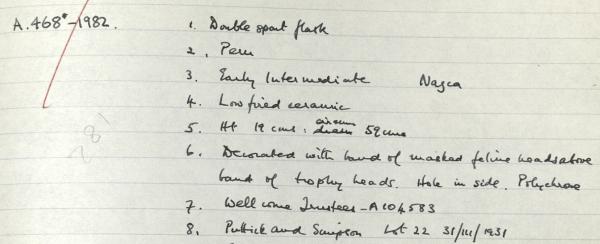 A.468-1982. 1. Double spout flask
2. Peru
3. Early Intermediate Nazca
4. Low fired ceramic
5. Ht 19 cms : circum diam 59 cms
6. Decorated with band of masked feline heads above
band of trophy heads. Hole in side. Polychrome
7. Wellcome Trustees - A104583
8. Puttick and Simpson Lot 22 31/III/1931
281